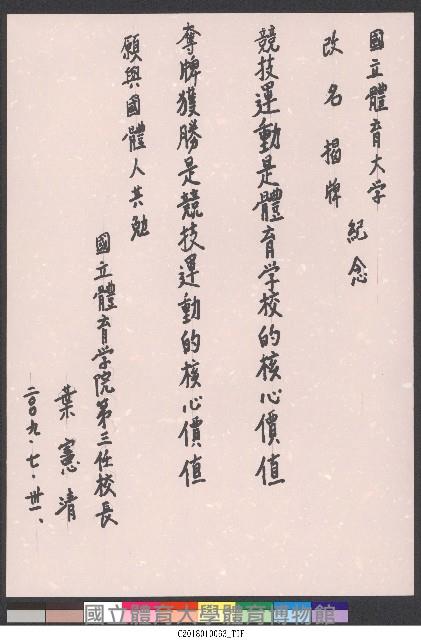 國立體育大学
改名揭牌
紀念
競技運動是體育学校的核心價值
奪牌獲勝是競技運動的核心價值
願與國體人共勉
國立體育学院第三任校長
葉憲清
二〇〇九.七.卅一、
國立體育大學體育博物館
C2018010063_TIF